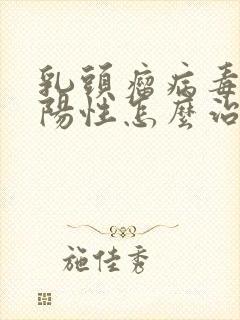 乳頭瘤病毒
陽性怎麼治
施佳秀